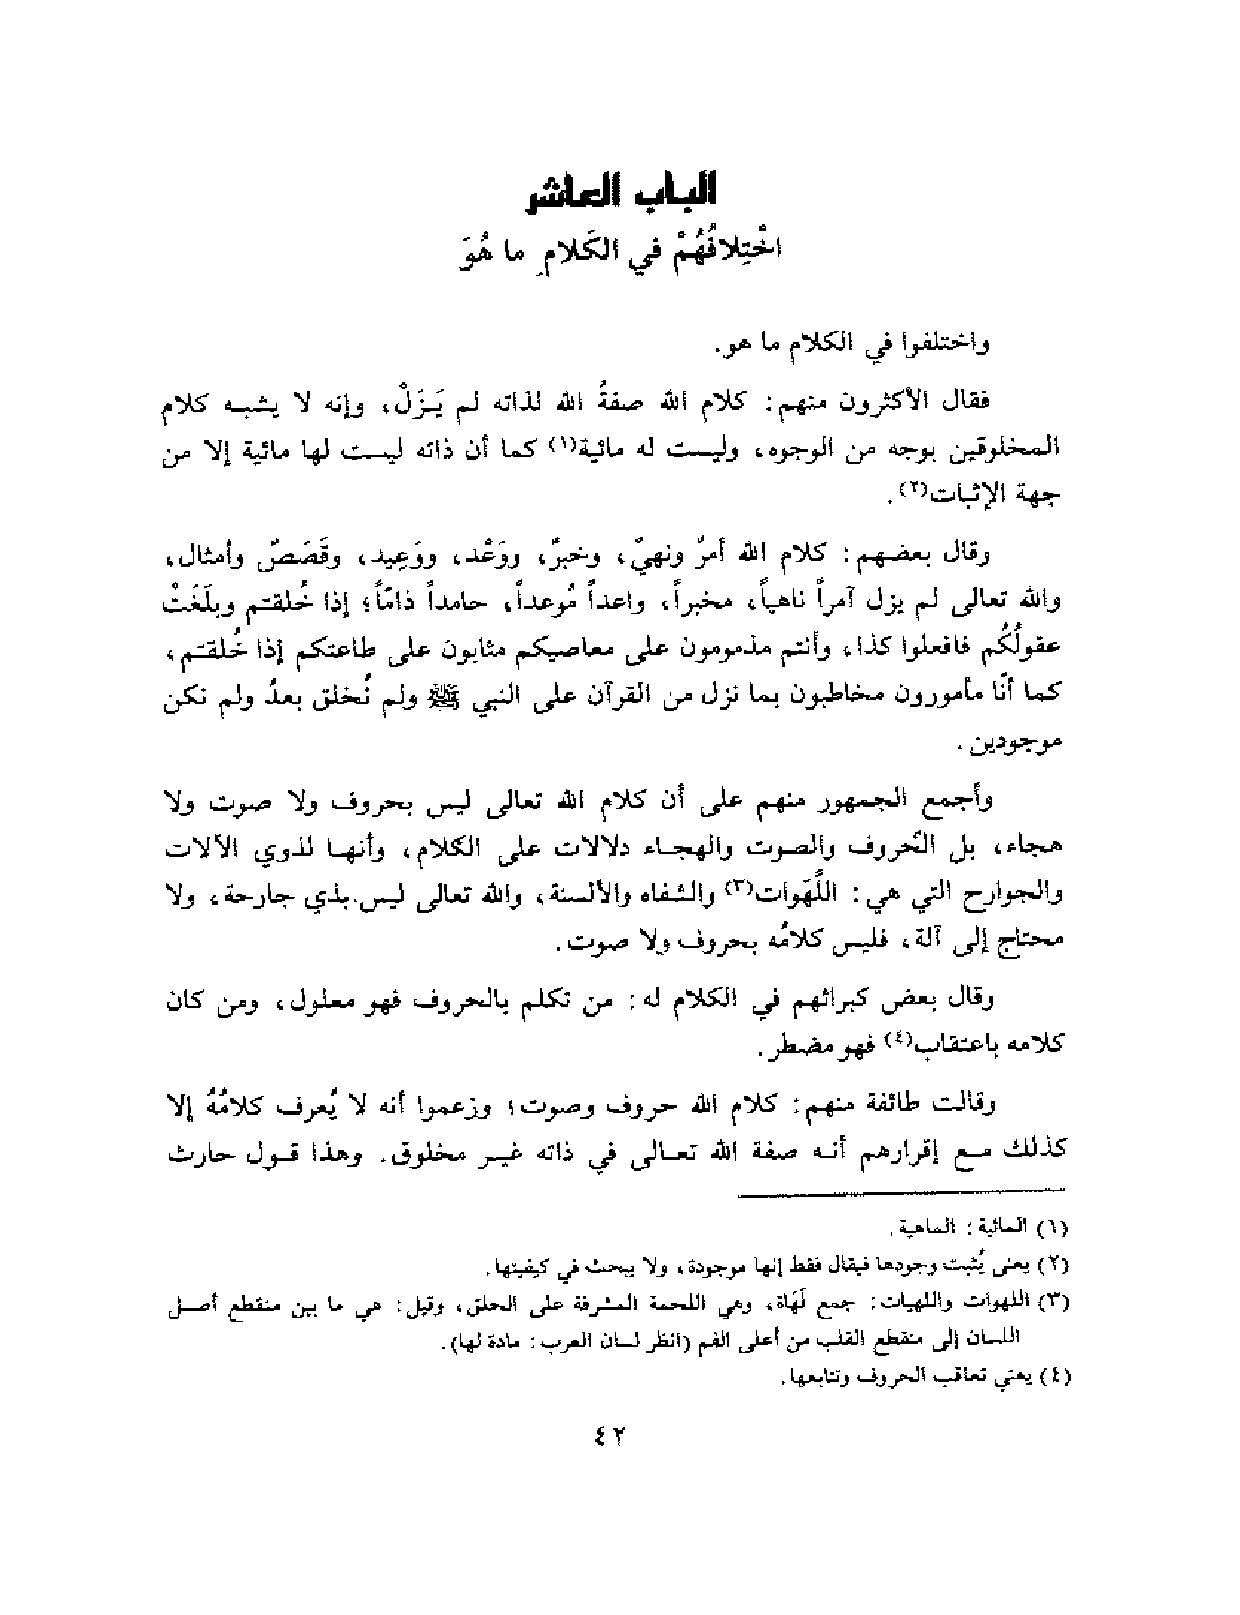 الباب العاشر
اخْتِلافُهُمْ في الكَلامِ ما هُوَ
واختلفوا في الكلام ما هو.
فقال الأكثرون منهم: كلام الله صفةُ الله لذاته لم يَـزَلْ، وإنه لا يشبـه كلام
المخلوقين بوجه من الوجوه، وليسـت له مائية(١) كما أن ذاته ليست لها مائية إلا من
جهة الإثبات(٢).
وقال بعضهم: كلام الله أمرٌ ونهيٌ، وخبرٌ، ووَعْد، ووَعِيد، وقَصَصٌ وأمثال،
والله تعالى لم يزل آمراً ناهياً، مخبراً، واعداً مُوعداً، حامداً ذامّاً؛ إذا خُلقتم وبلَغَتْ
عقولُكُم فافعلوا كذا، وأنتم مذمومون على معاصيكم مثابون على طاعتكم إذا خُلقتم،
كما أنّا مأمورون مخاطبون بما نزل من القرآن على النبي ﷺ ولم نُخلق بعدُ ولم نكن
موجودين.
وأجمع الجمهور منهم على أن كلام الله تعالى ليس بحروف ولا صوت ولا
هجاء، بل الحُروف والصوت والهجاء دلالات على الكلام، وأنهـا لذوي الآلات
والجوارح التي هي: اللَّهَوات(٣) والشفاه والألسنة، والله تعالى ليس.بذي جارحة، ولا
محتاج إلى آلة، فليس كلامُه بحروف ولا صوت.
وقال بعض كبرائهم في الكلام له: من تكلم بالحروف فهو معلول، ومن كان
كلامه باعتقاب(٤) فهو مضطر.
وقالت طائفة منهم: كلام الله حروف وصوت؛ وزعموا أنه لا يُعرف كلامُهُ إلا
كذلك مـع إقرارهم أنـه صفة الله تعـالى في ذاته غيـر مخلوق. وهذا قـول حارث
(١) المائية: الماهية.
(٢) يعني يُثبت وجودها فيقال فقط إنها موجودة، ولا يبحث في كيفيتها.
(٣) اللهوات واللهيات: جمع لَهَاة، وهي اللحمة المشرفة على الحلق، وقيل: هي ما بين منقطع أصـل
اللسان إلى منقطع القلب من أعلى الفم (انظر لسان العرب: مادة لها).
(٤) يعني تعاقب الحروف وتتابعها.
٤٢